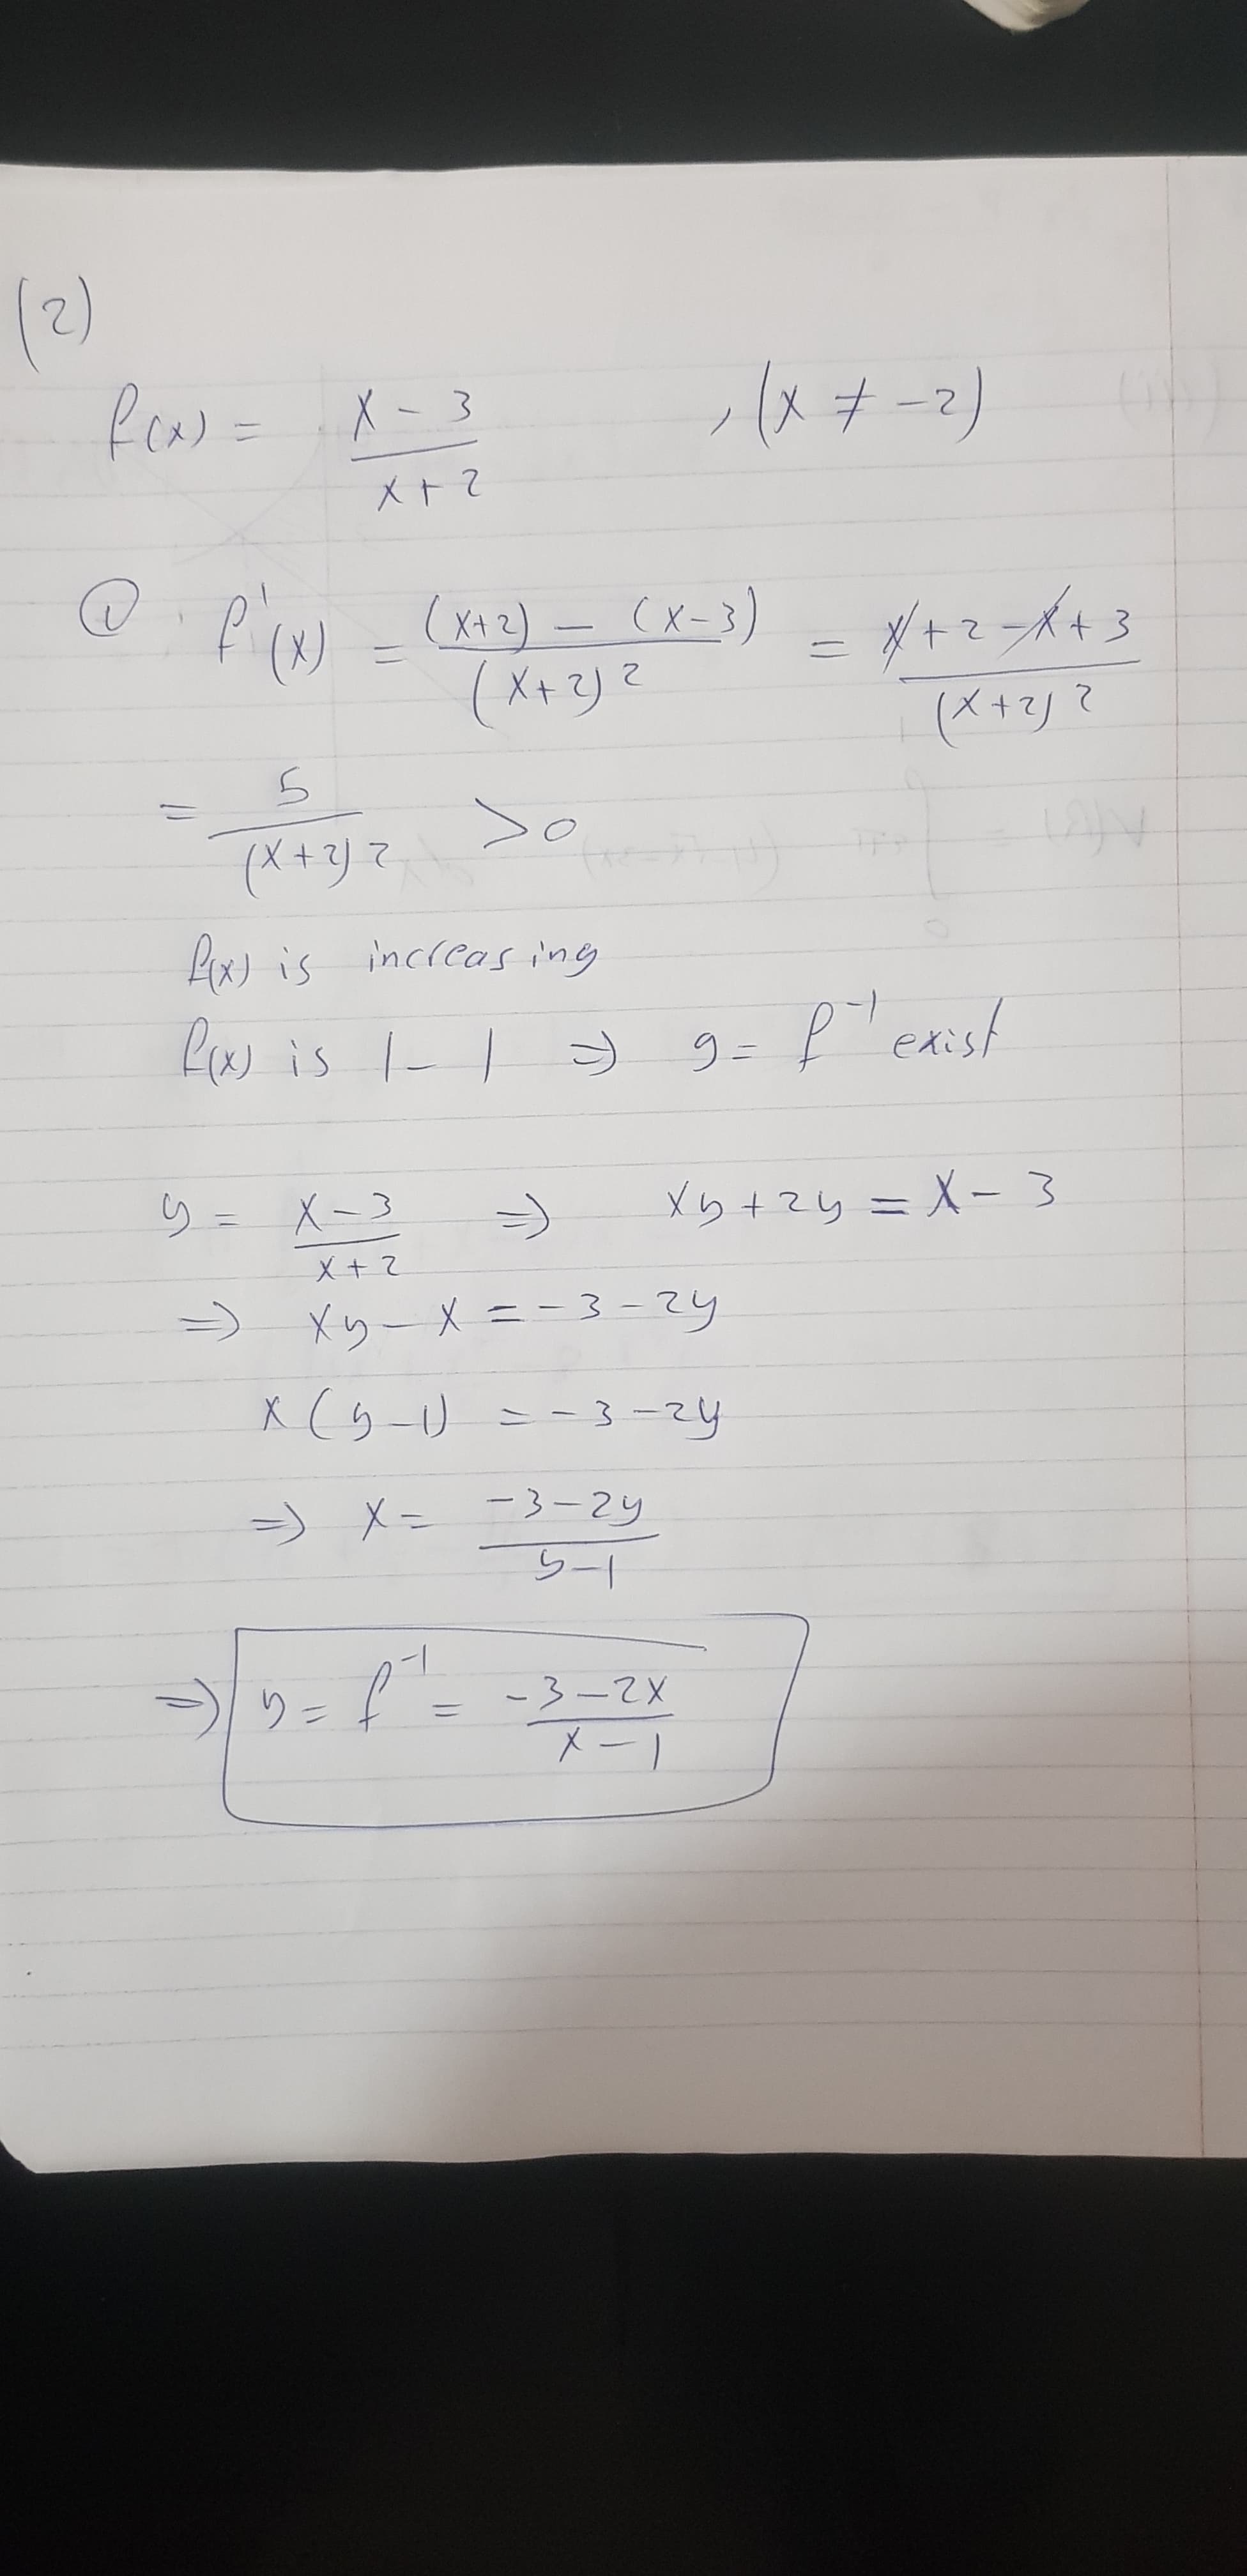 (2)
f(x) = (x - 3)/(x + 2) , (x ≠ -2)
① f'(x) = ((x+2) - (x-3))/(x+2)² = (x + 2 - x + 3)/(x+2)²
= 5/(x+2)² > 0
f(x) is increasing
f(x) is 1-1 ⇒ g = f⁻¹ exist
y = (x-3)/(x+2) ⇒ xy + 2y = x - 3
⇒ xy - x = -3 - 2y
x(y-1) = -3 - 2y
⇒ x = (-3-2y)/(y-1)
⇒ y = f⁻¹ = (-3-2x)/(x-1)